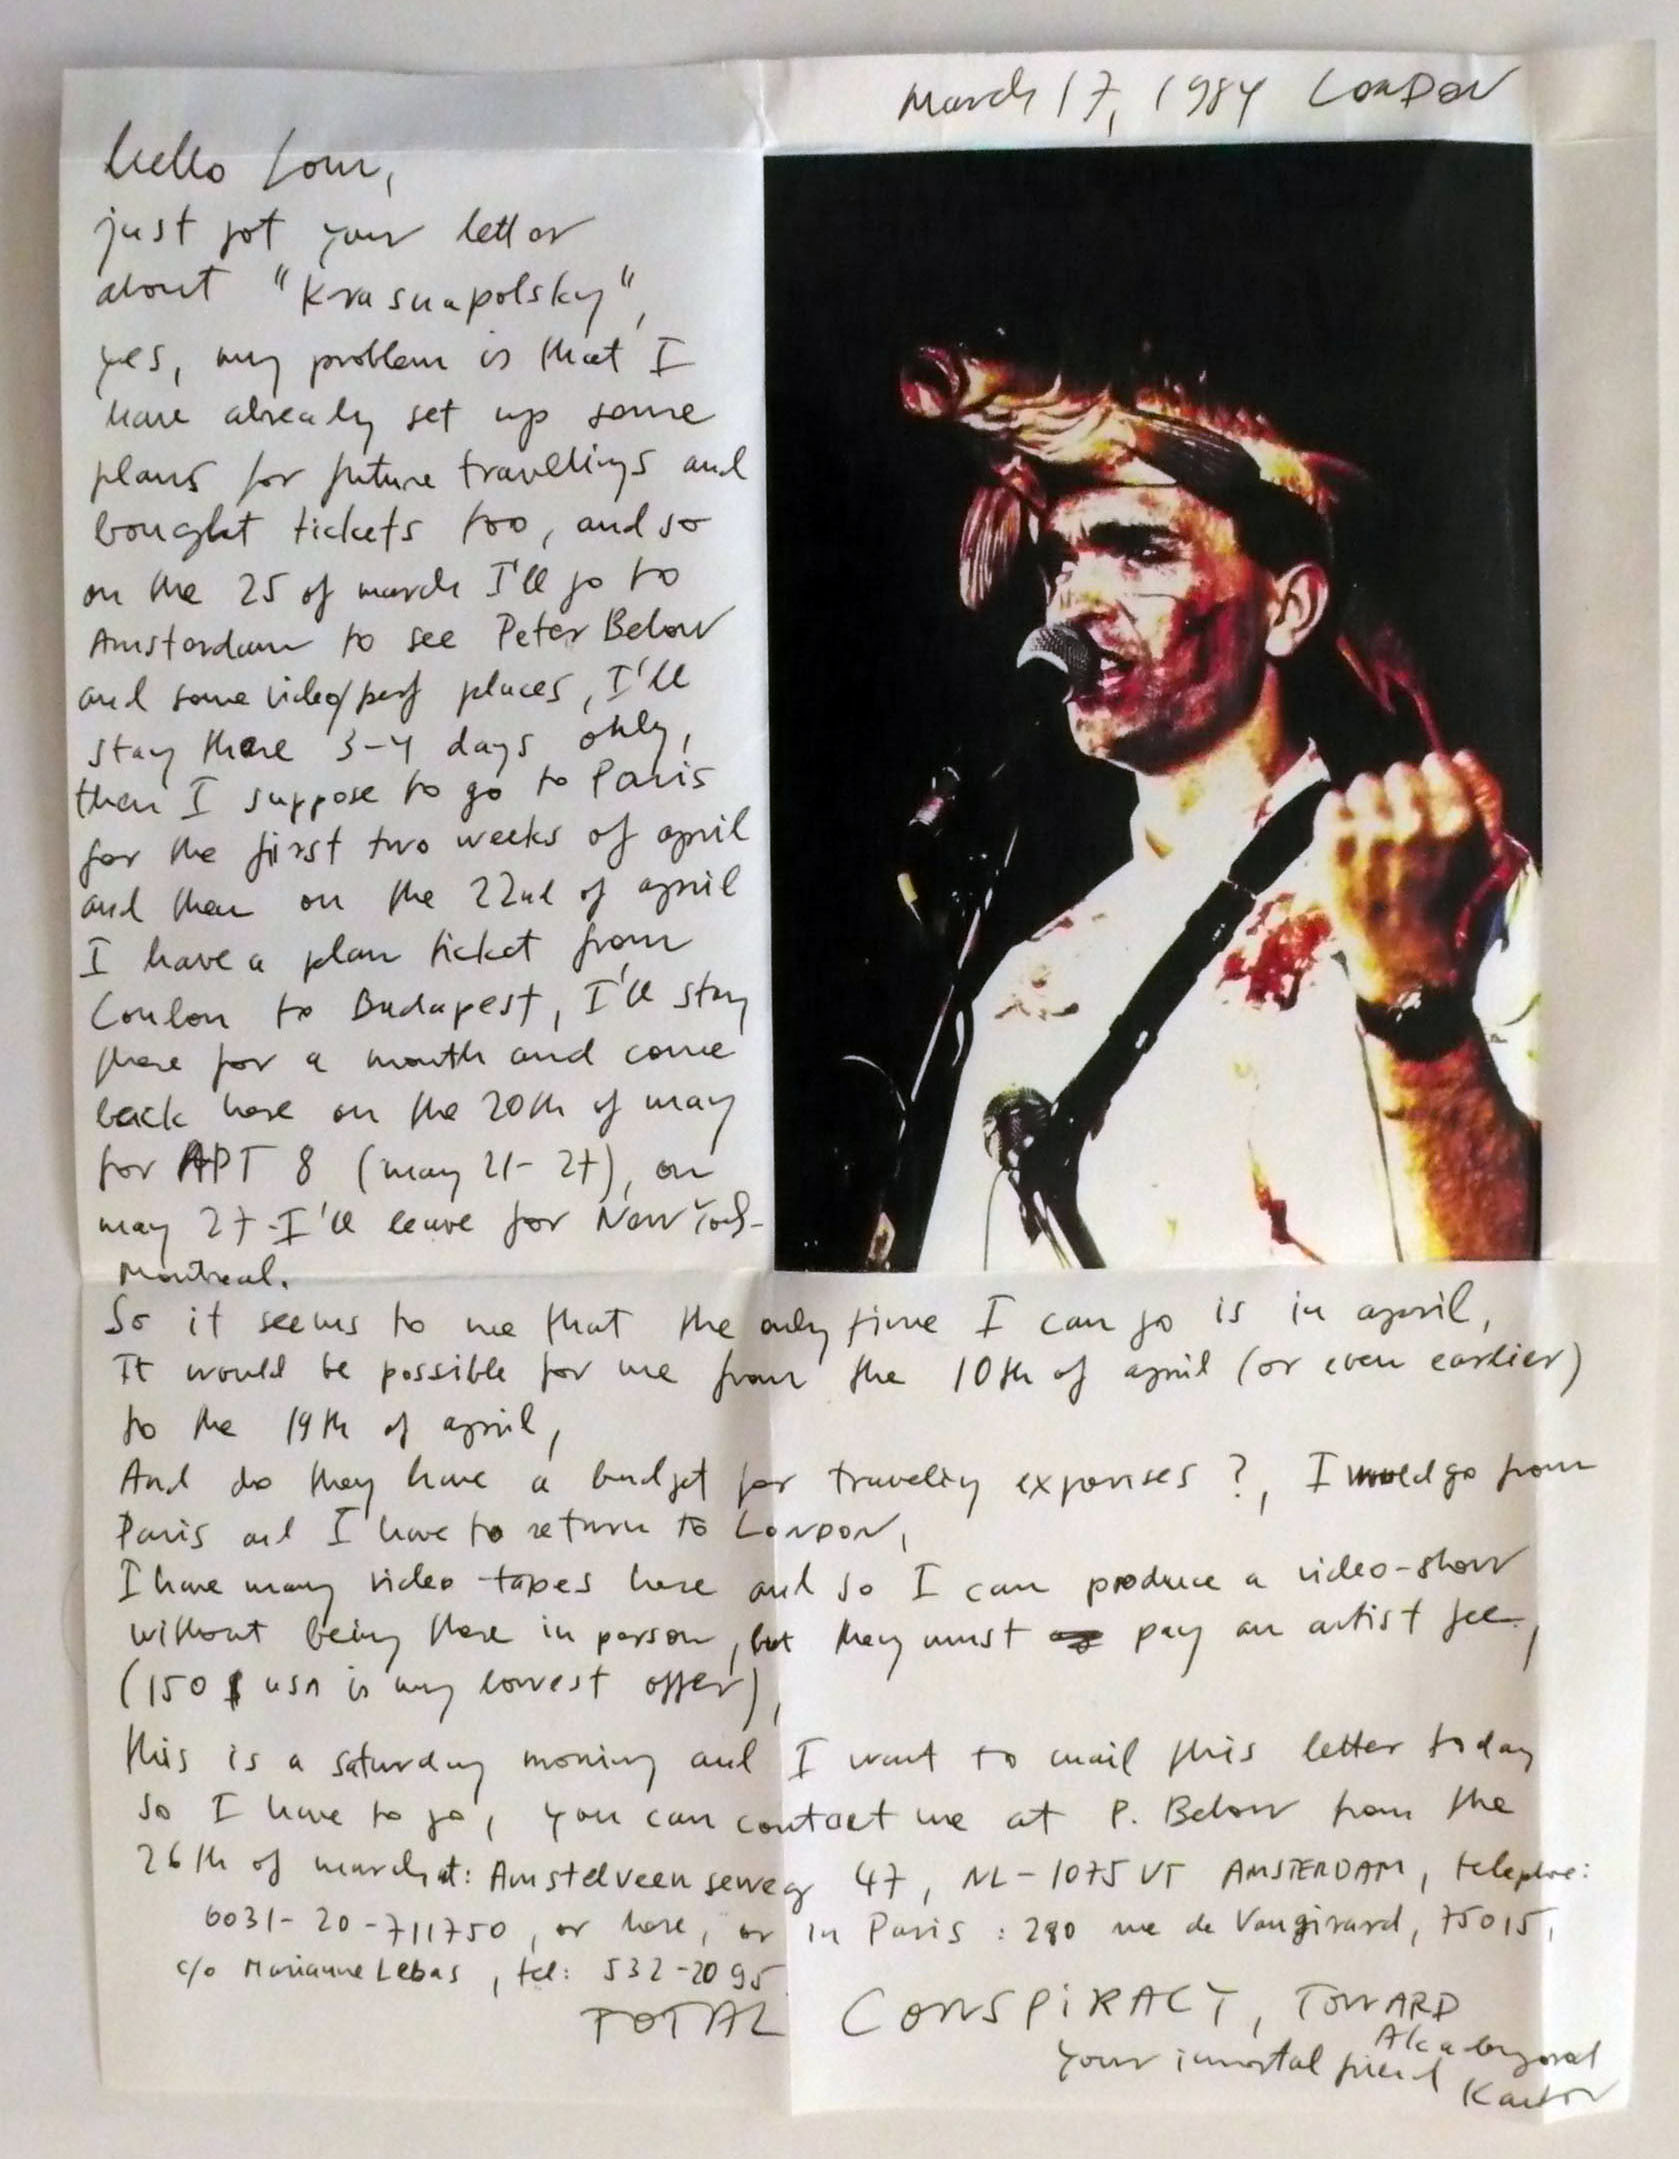 March 17, 1984 LONDON
hello Lou,
just got your letter
about "Krasnapolsky",
yes, my problem is that I
have already set up some
plans for future travellings and
bought tickets too, and so
on the 25 of march I'll go to
Amsterdam to see Peter Below
and some video/perf places, I'll
stay there 3-4 days only,
then I suppose to go to Paris
for the first two weeks of april
and then on the 22nd of april
I have a plan ticket from
London to Budapest, I'll stay
there for a month and come
back here on the 20th of may
for APT 8 (may 21-27), on
may 27-I'll leave for New York-
Montreal.
So it seems to me that the only time I can go is in april,
It would be possible for me from the 10th of april (or even earlier)
to the 19th of april,
And do they have a budget for traveling expenses ?, I would go from
Paris and I have to return to LONDON,
I have many video tapes here and so I can produce a video-show
without being there in person, but they must pay an artist fee,
(150 $ usa is my lowest offer),
this is a saturday morning and I want to mail this letter today
so I have to go, you can contact me at P. Below from the
26th of march at: Amstelveenseweg 47, NL-1075 VT AMSTERDAM, telephone:
0031-20-711750, or here, or in Paris : 280 rue de Vaugirard, 75015,
c/o Marianne Lebas, tel: 532-2095
TOTAL CONSPIRACY, TOWARD
Akademgorod
your immortal friend Kantor